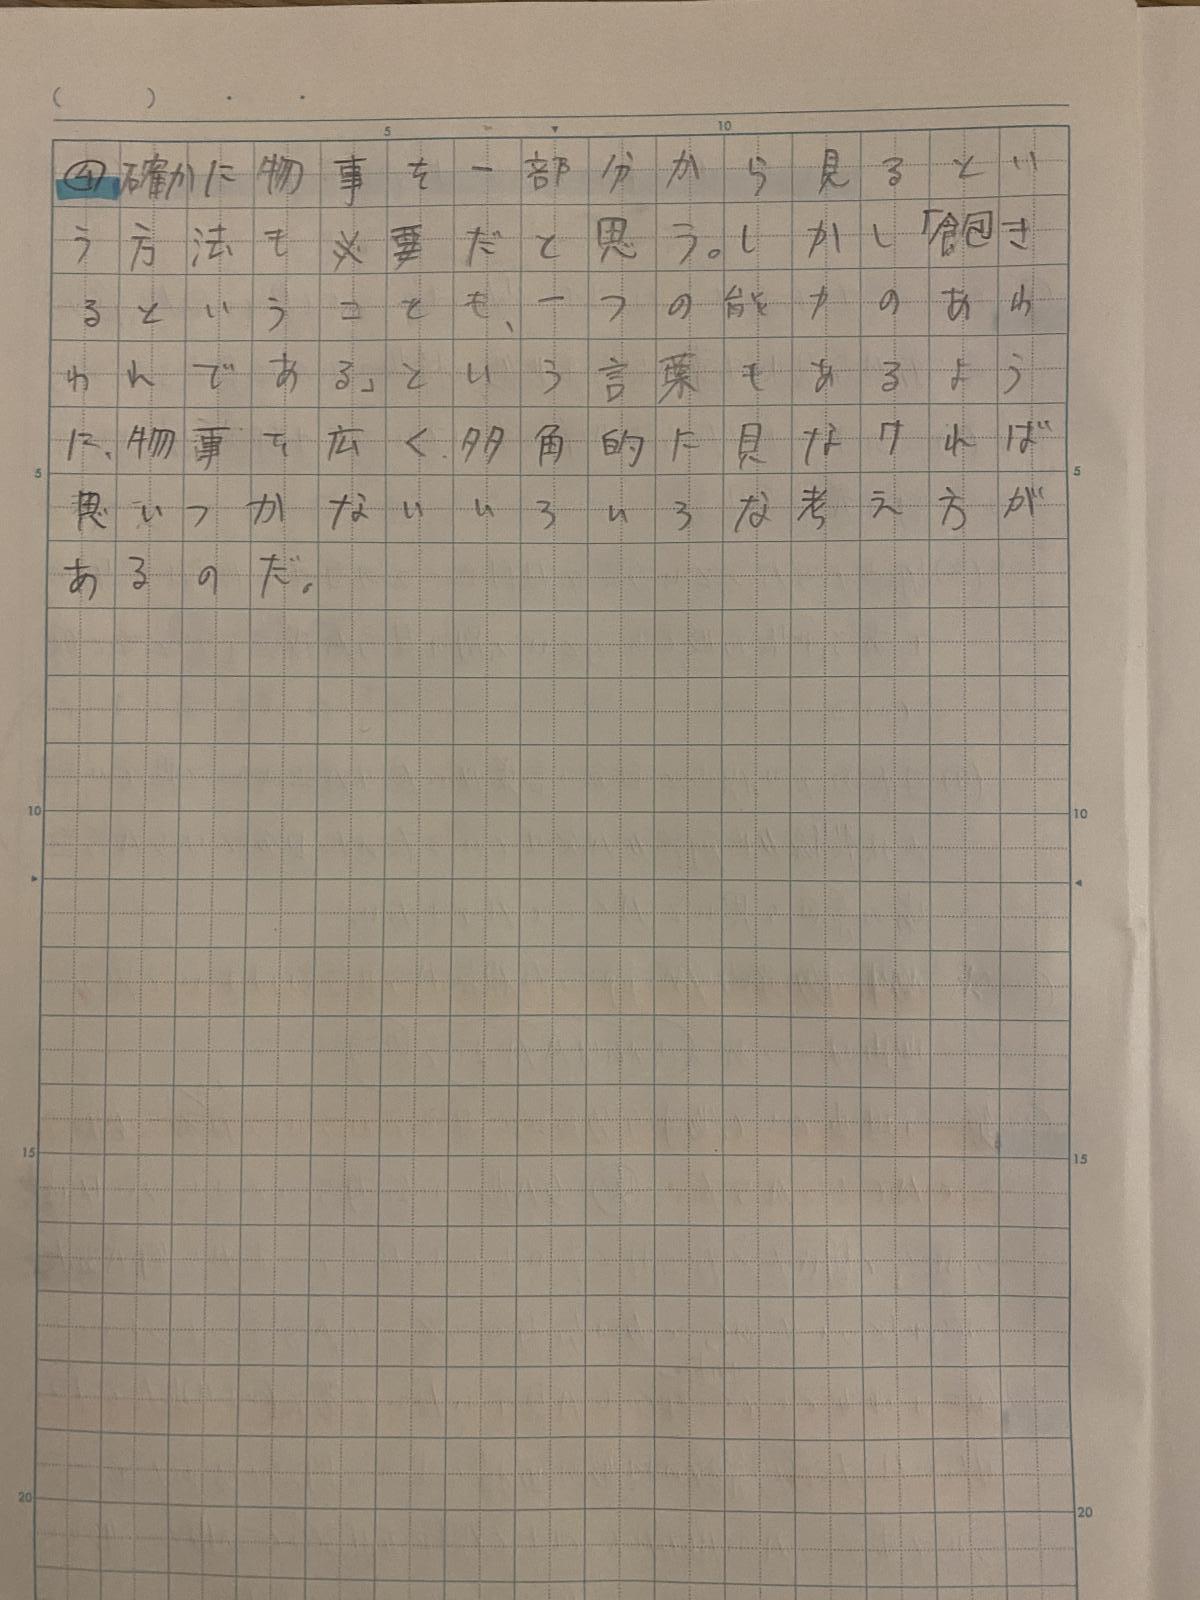 ( ) ・ ・
5 10
④確かに物事を一部分から見るとい
う方法も必要だと思う。しかし「飽き
るということも、一つの能力のあわ
われである」という言葉もあるよう
に、物事を広く、多角的に見なければ
5 5
思いつかないいろいろな考え方が
あるのだ。
10 10
15 15
20 20